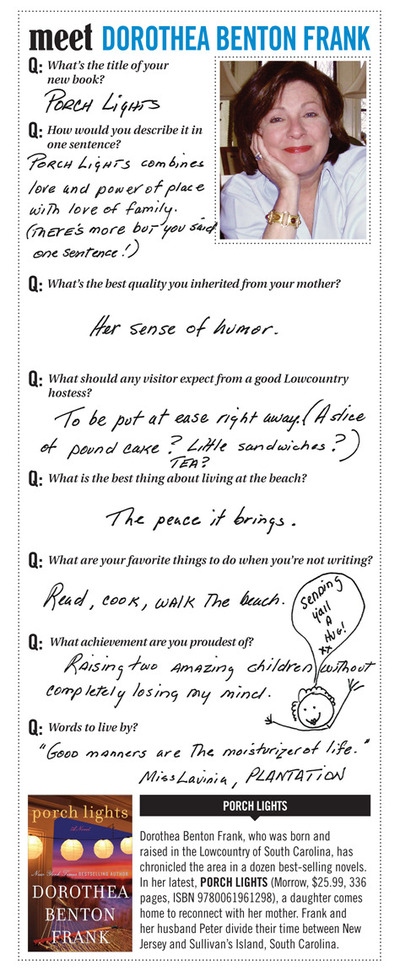 meet DOROTHEA BENTON FRANK
Q: What's the title of your
new book?
PORCH LIGHTS
Q: How would you describe it in
one sentence?
PORCH LIGHTS combines
love and power of place
with love of family.
(THERE'S more but you said
one sentence!)
Q: What's the best quality you inherited from your mother?
Her sense of humor.
Q: What should any visitor expect from a good Lowcountry
hostess?
To be put at ease right away. (A slice
of pound cake? Little sandwiches?)
TEA?
Q: What is the best thing about living at the beach?
The peace it brings.
Q: What are your favorite things to do when you're not writing?
Read, cook, walk The beach.
sending
y'all
A
HUG!
xx
Q: What achievement are you proudest of?
Raising two amazing children without
completely losing my mind.
Q: Words to live by?
"Good manners are The moisturizer of life."
Miss Lavinia, PLANTATION
porch lights
A Novel
New York Times BESTSELLING AUTHOR
DOROTHEA
BENTON
FRANK
PORCH LIGHTS
Dorothea Benton Frank, who was born and
raised in the Lowcountry of South Carolina, has
chronicled the area in a dozen best-selling novels.
In her latest, PORCH LIGHTS (Morrow, $25.99, 336
pages, ISBN 9780061961298), a daughter comes
home to reconnect with her mother. Frank and
her husband Peter divide their time between New
Jersey and Sullivan's Island, South Carolina.